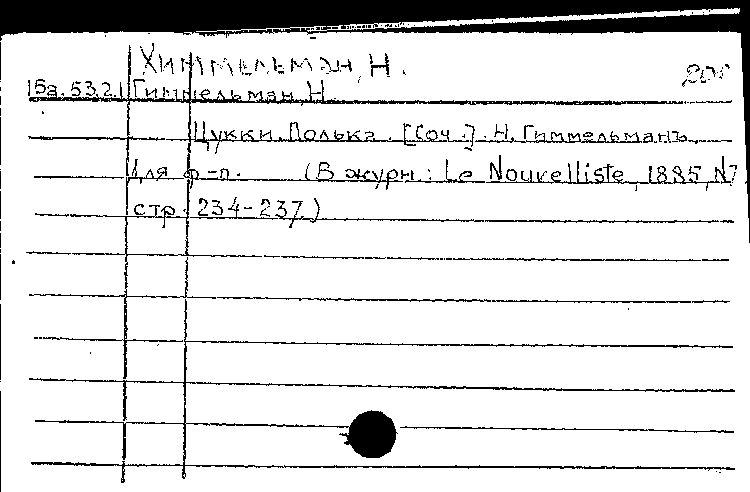 Химмельман, Н.
15а.53.2.1 Гиммельман, Н.
Цукки. Полька. [Соч.]. Н. Гиммельманъ.
Для ф-п. (В журн: Le Nouvelliste, 1885, N7
стр. 234-237.)